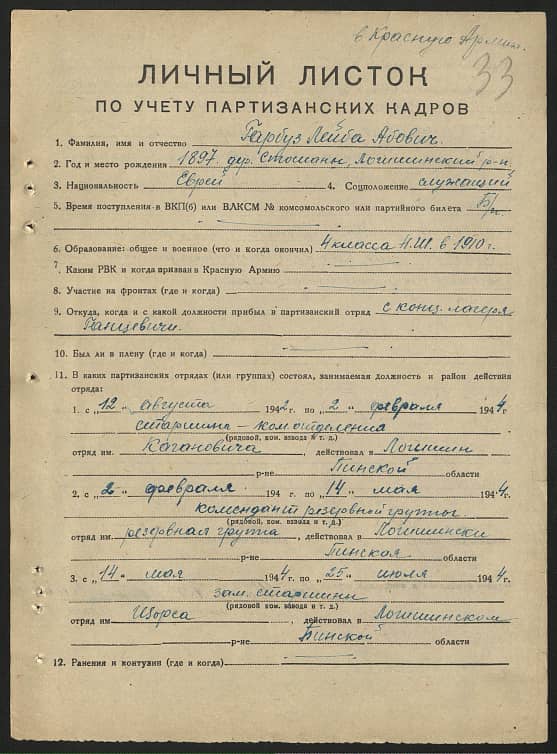 в Красную Армию.
33
ЛИЧНЫЙ ЛИСТОК
ПО УЧЕТУ ПАРТИЗАНСКИХ КАДРОВ
1. Фамилия, имя и отчество Гарбуз Лейба Абович.
2. Год и место рождения 1897. дер. Стошаны, Логишинский р-н
3. Национальность Еврей 4. Соцположение служащий
5. Время поступления в ВКП(б) или ВЛКСМ № комсомольского или партийного билета Б/п
6. Образование: общее и военное (что и когда окончил) 4 класса Н.Ш. в 1910 г.
7. Каким РВК и когда призван в Красную Армию
8. Участие на фронтах (где и когда)
9. Откуда, когда и с какой должности прибыл в партизанский отряд с конц. лагеря
Ганцевичи.
10. Был ли в плену (где и когда)
11. В каких партизанских отрядах (или группах) состоял, занимаемая должность и район действия
отряда:
1. с „12" августа 1942 г. по „2" февраля 1944 г.
старшина – ком отделения
(рядовой, ком. взвода и т. д.)
отряд им. Кагановича, действовал в Логишин
р-не Пинской области
2. с „2" февраля 1944 г. по „14" мая 1944 г.
комендант резервной группы.
(рядовой, ком. взвода и т. д.)
отряд им. резервная группа, действовал в Логишински
р-не Пинская области
3. с „14" мая 1944 г. по „25" июля 1944 г.
зам. старшины
(рядовой, ком. взвода и т. д.)
отряд им Щорса, действовал в Логишинском
р-не Пинской области
12. Ранения и контузии (где и когда)